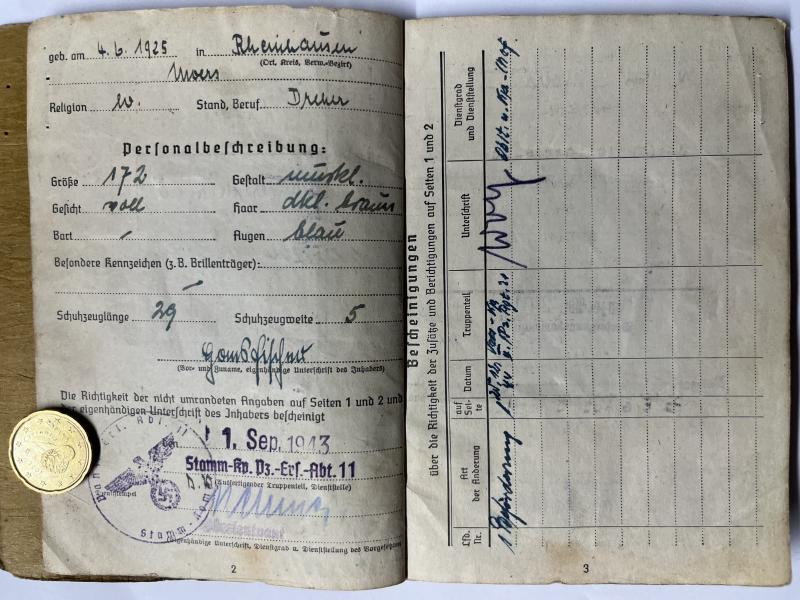 geb. am 4. 6. 1925 in Rheinhausen
(Ort, Kreis, Verw.-Bezirk)
Moers
Religion ev. Stand, Beruf Dreher
Personalbeschreibung:
Größe 172 Gestalt muskl.
Gesicht voll Haar dkl. braun
Bart - Augen blau
Besondere Kennzeichen (z.B. Brillenträger):
-
Schuhzeuglänge 29 Schuhzeugweite 5
(Vor- und Zuname, eigenhändige Unterschrift des Inhabers)
Die Richtigkeit der nicht umrandeten Angaben auf Seiten 1 und 2 und
der eigenhändigen Unterschrift des Inhabers bescheinigt
1. Sep. 1943
Stamm-Kp. Pz.-Ers.-Abt. 11
(Ausfertigender Truppenteil, Dienststelle)
Dienststempel
Oberleutnant
(Eigenhändige Unterschrift, Dienstgrad u. Dienststellung des Vorgesetzten)
2
Bescheinigungen
über die Richtigkeit der Zusätze und Berichtigungen auf Seiten 1 und 2
Lfd. Nr.
Art der Änderung
auf Seite
Datum
Truppenteil
Unterschrift
Dienstgrad und Dienststellung
1 Beförderung 1
3